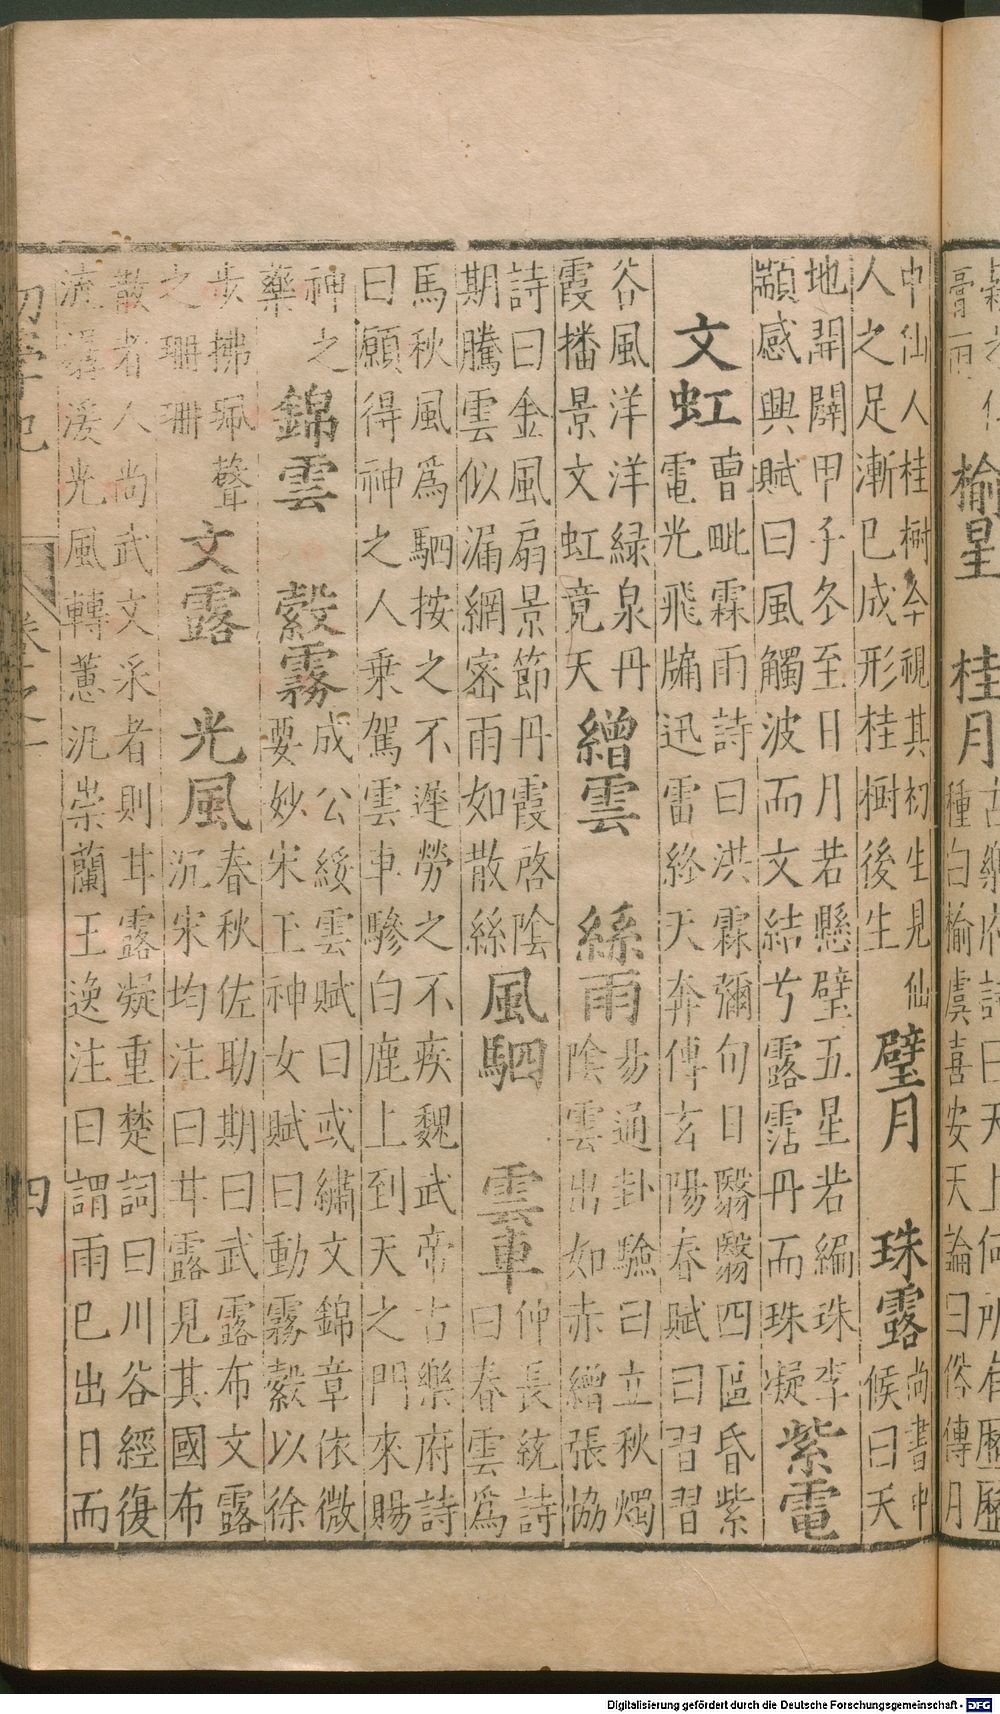 膏雨
榆星 桂月
古樂府詩曰天上何所有歷歷
種白榆虞喜安天論曰俗傳月
中仙人桂樹今視其初生見仙
人之足漸已成形桂樹後生
璧月 珠露
尚書中
候曰天
地開闢甲子冬至日月若懸璧五星若編珠李
顓感興賦曰風觸波而文結兮露霑丹而珠凝
紫電
文虹
曹毗霖雨詩曰洪霖彌旬日翳翳四區昏紫
電光飛牖迅雷終天奔傅玄陽春賦曰習習
谷風洋洋綠泉丹
霞播景文虹竟天
繒雲 絲雨
易通卦驗曰立秋燭
陰雲出如赤繒張協
詩曰金風扇景節丹霞啓陰
期騰雲似漏網密雨如散絲
風駟 雲車
仲長統詩
曰春雲爲
馬秋風爲駟按之不遲勞之不疾魏武帝古樂府詩
曰願得神之人乘駕雲車驂白鹿上到天之門來賜
神之
藥
錦雲 縠霧
成公綏雲賦曰或繡文錦章依微
要妙宋玉神女賦曰動霧縠以徐
步拂珮聲
之珊珊
文露 光風
春秋佐助期曰武露布文露
沉宋均注曰甘露見其國布
散者人尚武文采者則甘露凝重楚詞曰川谷經復
流潺湲光風轉蕙汜崇蘭王逸注曰謂雨已出日而
初學記 卷之一 四
Digitalisierung gefördert durch die Deutsche Forschungsgemeinschaft - DFG